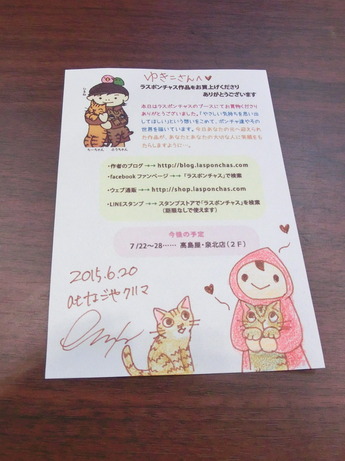 ゆきこさんへ♥
ラスポンチャス作品をお買上げくださり
ありがとうございます
本日はラスポンチャスのブースにてお買物くださり
ありがとうございました。「やさしい気持ちを思い出
してほしい」という想いをこめて、ポンチャ達やその
世界を描いています。今日あなたの元へ迎えられ
た作品が、あなたとあなたの大切な人に笑顔をも
たらしますように…
・作者のブログ →→ http://blog.lasponchas.com
・facebook ファンページ →→ 「ラスポンチャス」で検索
・ウェブ通販 →→ http://shop.lasponchas.com
・LINEスタンプ →→ スタンプストアで「ラスポンチャス」を検索
(課金なしで使えます)
今後の予定
7/22〜28…… 高島屋・泉北店(2F)
2015.6.20
at なごや クリマ